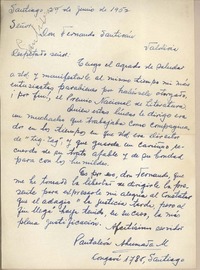 Santiago 29 de junio de 1952
Señor
Don Fernando Santiván
Valdivia
Respetado señor:
Tengo el agrado de saludar
a Ud. y manifestarle al mismo tiempo mis más
entusiastas parabienes por habérsele otorgado,
¡por fin!, el Premio Nacional de Literatura.
Quien estas líneas le dirige es
un muchacho que trabajaba como compaginador
en los tiempos en que Ud. era director
de "Zig-Zag" y que guarda un cariñoso recuerdo
de su trato afable y de su bondad
para con los humildes.
Es por eso, don Fernando, que
me he tomado la libertad de dirigirle la presente
para expresarle mi alegría al constatar
que el adagio "la justicia tarda, pero al
fin llega" haya tenido, en su caso, la más
plena justificación.
Afectísimo servidor
Pantaleón Ahumada M.
Conferencia 1786, Santiago